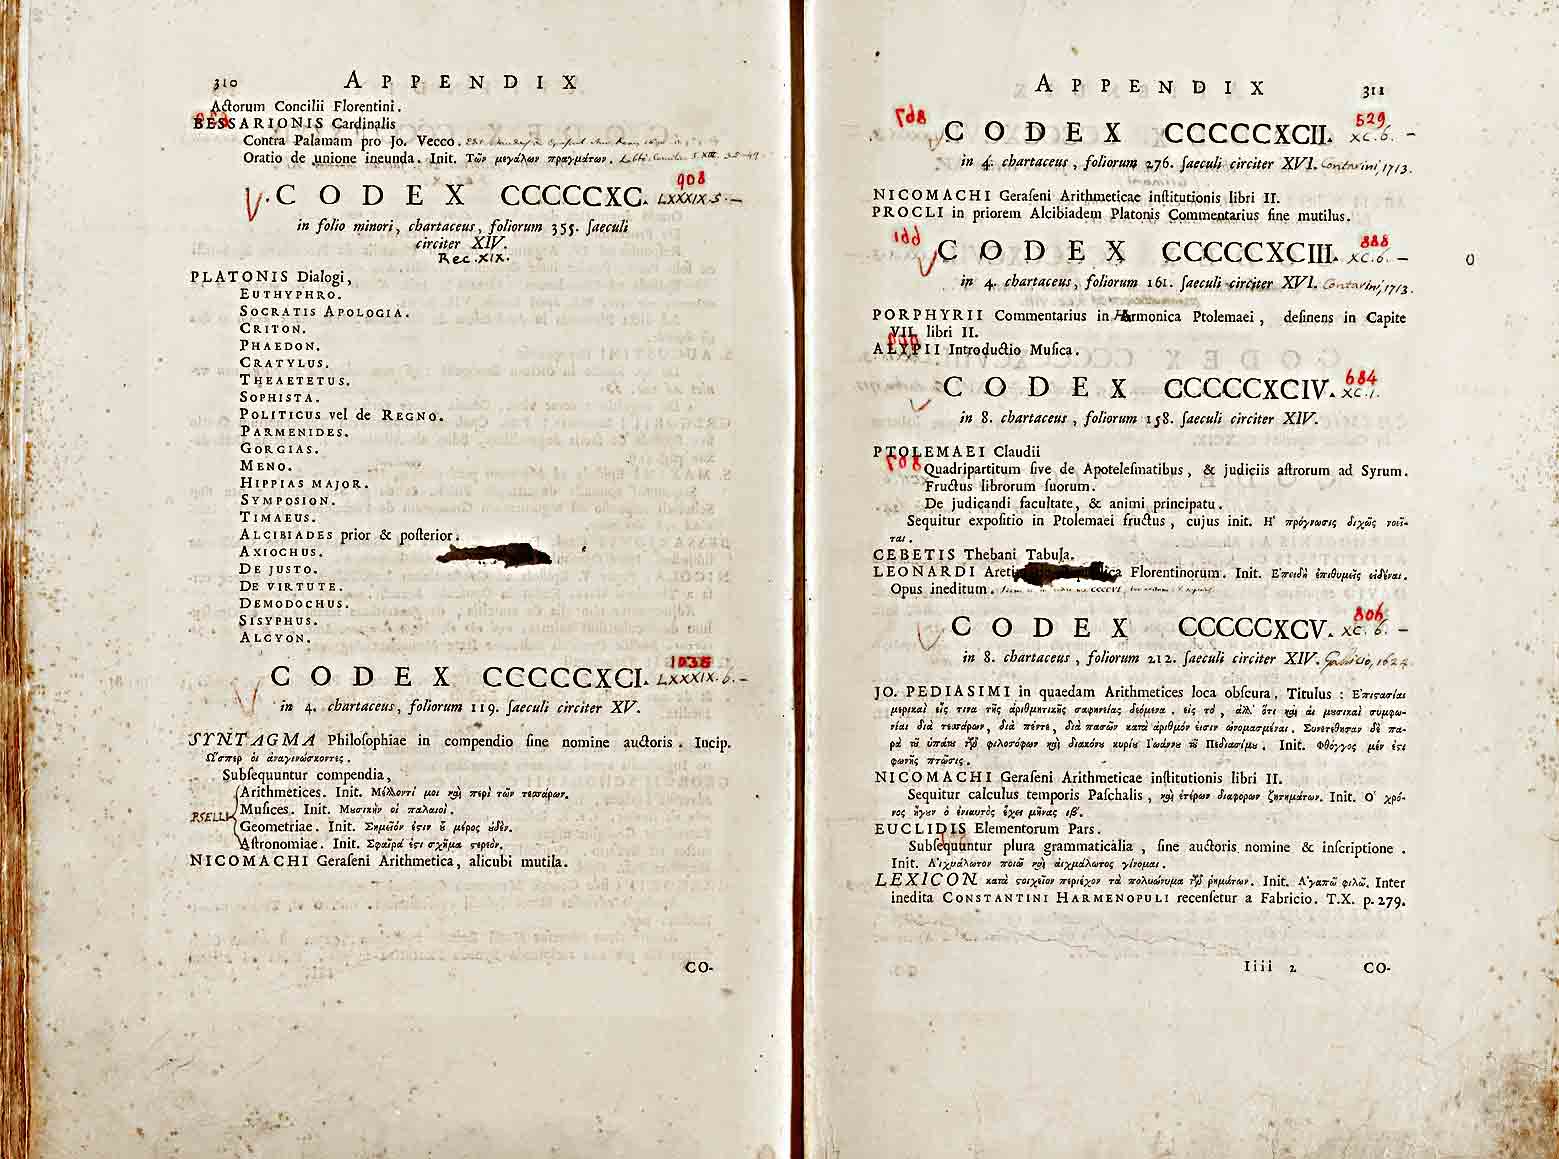 310 APPENDIX
Actorum Concilii Florentini.
BESSARIONIS Cardinalis
Contra Palamam pro Jo. Vecco.
Oratio de unione ineunda. Init. Τῶν μεγάλων πραγμάτων.
908
CODEX CCCCCXC. LXXXIX.5.—
in folio minori, chartaceus, foliorum 355. ſaeculi
circiter XIV.
Rec. XIX.
PLATONIS Dialogi,
EUTHYPHRO.
SOCRATIS APOLOGIA.
CRITON.
PHAEDON.
CRATYLUS.
THEAETETUS.
SOPHISTA.
POLITICUS vel de REGNO.
PARMENIDES.
GORGIAS.
MENO.
HIPPIAS MAJOR.
SYMPOSION.
TIMAEUS.
ALCIBIADES prior & poſterior.
AXIOCHUS.
DE JUSTO.
DE VIRTUTE.
DEMODOCHUS.
SISYPHUS.
ALCYON.
CODEX CCCCCXCI. LXXXIX.6.—
in 4. chartaceus, foliorum 119. ſaeculi circiter XV.
SYNTAGMA Philoſophiae in compendio ſine nomine auctoris. Incip.
Ὥσπερ οἱ ἀναγινώσκοντες.
Subſequuntur compendia,
Arithmetices. Init. Μέλλοντί μοι καὶ περὶ τῶν τεσσάρων.
Muſices. Init. Μουσικὴν οἱ παλαιοί.
PSELLI
Geometriae. Init. Σημεῖόν ἐστιν οὗ μέρος οὐδέν.
Aſtronomiae. Init. Σφαῖρά ἐστι σχῆμα στερεόν.
NICOMACHI Geraſeni Arithmetica, alicubi mutila.
CO-
APPENDIX 311
529
CODEX CCCCCXCII. XC.6.—
in 4. chartaceus, foliorum 276. ſaeculi circiter XVI. Contarini, 1713.
NICOMACHI Geraſeni Arithmeticae inſtitutionis libri II.
PROCLI in priorem Alcibiadem Platonis Commentarius ſine mutilus.
888
CODEX CCCCCXCIII. XC.6.— O
in 4. chartaceus, foliorum 161. ſaeculi circiter XVI. Contarini, 1713.
PORPHYRII Commentarius in Harmonica Ptolemaei, deſinens in Capite
VII. libri II.
ALYPII Introductio Muſica.
684
CODEX CCCCCXCIV. XC.1.
in 8. chartaceus, foliorum 158. ſaeculi circiter XIV.
PTOLEMAEI Claudii
Quadripartitum ſive de Apoteleſmatibus, & judiciis aſtrorum ad Syrum.
Fructus librorum ſuorum.
De judicandi facultate, & animi principatu.
Sequitur expoſitio in Ptolemaei fructus, cujus init. Ἡ πρόγνωσις διχῶς νοεῖ-
ται.
CEBETIS Thebani Tabula.
LEONARDI Florentinorum. Init. Ἐπειδὴ ἐπιθυμεῖς εἰδέναι.
Opus ineditum.
806
CODEX CCCCCXCV. XC.6.—
in 8. chartaceus, foliorum 212. ſaeculi circiter XIV. 1624
JO. PEDIASIMI in quaedam Arithmetices loca obſcura, Titulus: Ἐπιστασίαι
μερικαὶ εἴς τινα τῆς ἀριθμητικῆς σαφηνείας δεόμενα. εἰς τό, ἀλλ' ὅτι καὶ αἱ μουσικαὶ συμφω-
νίαι διὰ τεσσάρων, διὰ πέντε, διὰ πασῶν κατὰ ἀριθμόν εἰσιν ὠνομασμέναι. Συνετέθησαν δὲ πα-
ρὰ τοῦ ὑπάτου τῶν φιλοσόφων καὶ διακόνου κυρίου Ἰωάννου τοῦ Πεδιασίμου. Init. Φθόγγος μέν ἐστι
φωνῆς πτῶσις.
NICOMACHI Geraſeni Arithmeticae inſtitutionis libri II.
Sequitur calculus temporis Paſchalis, καὶ ἑτέρων διαφορων ζητημάτων. Init. Ὁ χρό-
νος ἤγουν ὁ ἐνιαυτὸς ἔχει μῆνας ιβ'.
EUCLIDIS Elementorum Pars.
Subſequuntur plura grammaticalia, ſine auctoris nomine & inſcriptione.
Init. Αἰχμάλωτον ποιῶ καὶ αἰχμάλωτος γίνομαι.
LEXICON κατὰ στοιχεῖον περιέχον τὰ πολυώνυμα τῶν ῥημάτων. Init. Ἀγαπῶ φιλῶ. Inter
inedita CONSTANTINI HARMENOPULI recenſetur a Fabricio. T.X. p.279.
Iiii 2 CO-